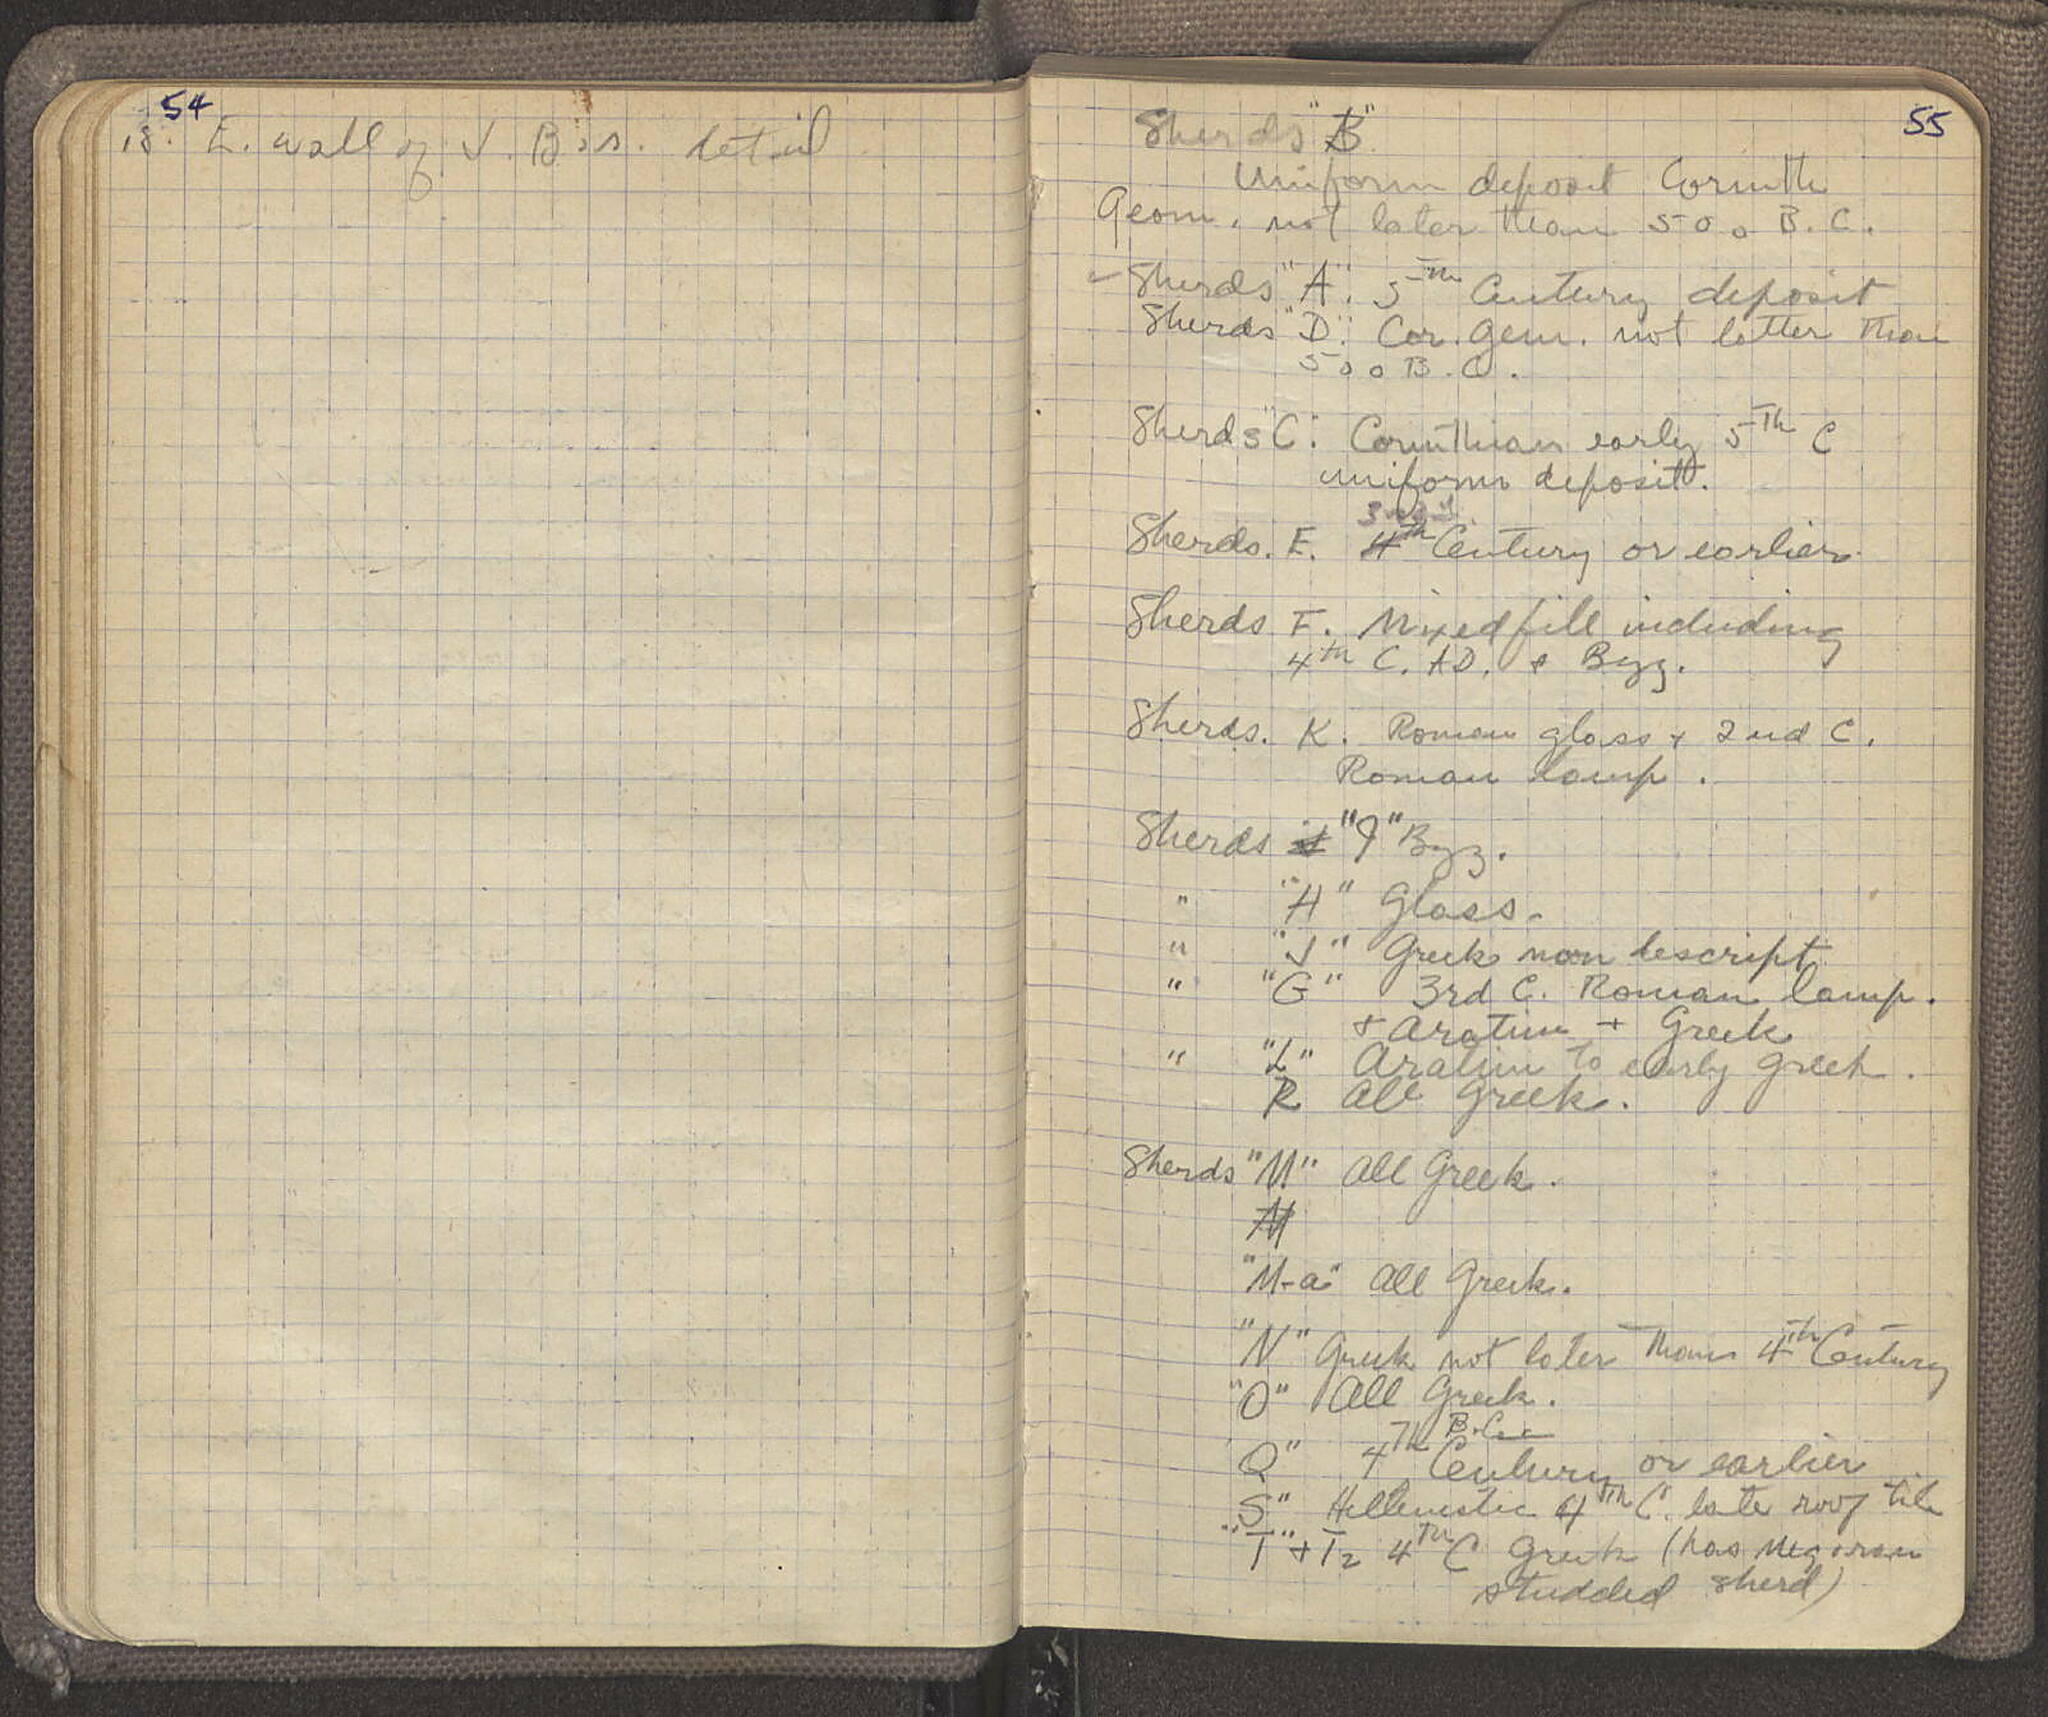 54
18. E. wall of J. Bas. detail
55
Sherds "B"
Uniform deposit Corinth
Geom. not later than 500 B.C.
Sherds "A". 5th Century deposit
Sherds "D". Cor. Geom. not latter than
500 B.C.
Sherds "C". Corinthian early 5th C
uniform deposit.
3rd
Sherds. E. 4th Century or earlier.
Sherds F. Mixed fill including
4th C. AD. & Byz.
Sherds. K. Roman glass + 2nd C.
Roman lamp.
Sherds "I" Byz.
" "H" Glass.
" "J" Greek non descript
" "G" 3rd C. Roman lamp.
+ Aratim + Greek
" "L" Aratim to early Greek.
R All Greek.
Sherds "M" All Greek.
M
"M-a" All Greek.
"N" Greek not later than 4th Century
"O" All Greek.
B.C.
Q" 4th Century or earlier
S" Hellenistic 4th C. late roof tile
"T" + T2 4th C Greek (has Megarian
studded sherd)